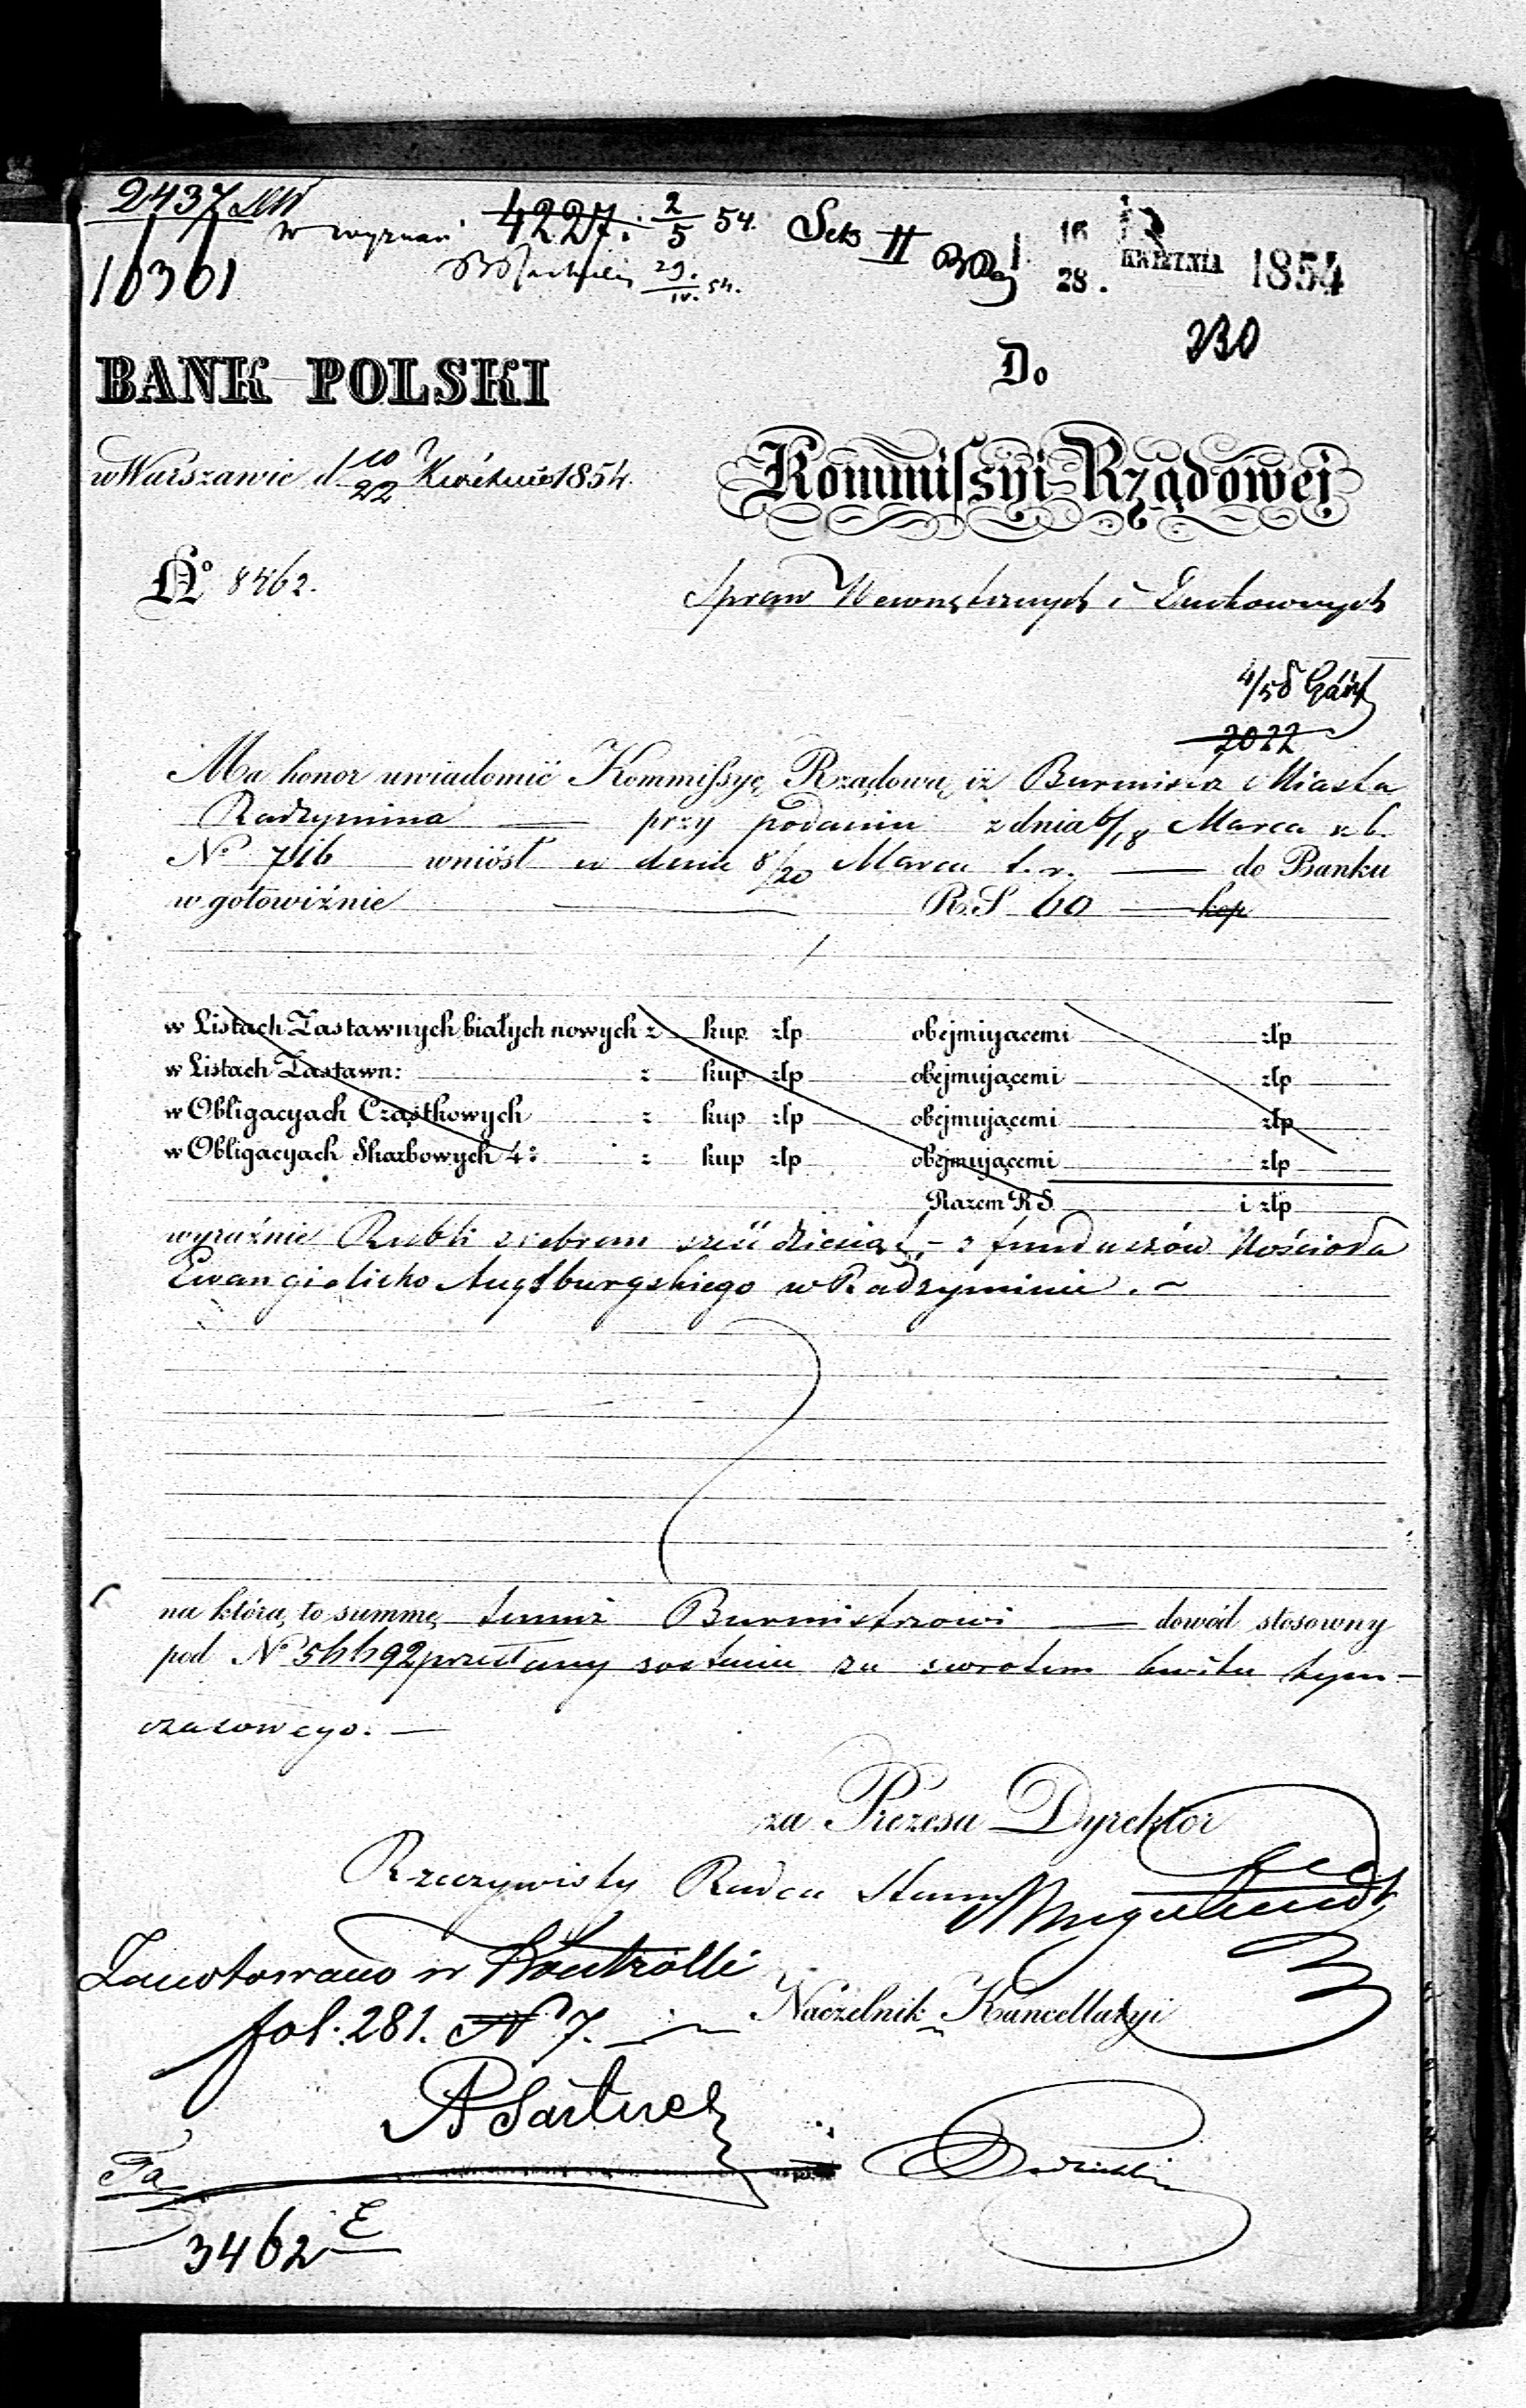 2437
w wyznań 4227. 2/5 54. Sek II
10301 29./IV. 54. 16/28. KWIETNIA 1854
230
BANK POLSKI Do
w Warszawie d 10/22 Kwietnia 1854. Kommissyi Rządowej
No 8462. Spraw Wewnętrznych i Duchownych
4/58
2022
Ma honor uwiadomić Kommissyę Rządową iż Burmistrz Miasta
Radzymina — przy podaniu z dnia 6/18 Marca r. b.
No 746 wniósł w dniu 8/20 Marca t. r. — do Banku
w gotowiźnie — R. S 60 — kop
w Listach Zastawnych białych nowych z kup złp obejmującemi złp
w Listach Zastawn: z kup złp obejmującemi złp
w Obligacyach Cząstkowych z kup złp obejmującemi złp
w Obligacyach Skarbowych 4% z kup złp obejmującemi złp
Razem R S i złp
wyraźnie Rubli srebrem sześćdziesiąt, – z funduszów Kościoła
Ewangielicko Augsburgskiego w Radzyminie. ~
na którą to summę temuż Burmistrzowi — dowód stosowny
pod No 56692 przesłany zostanie za zwrotem kwitu tym-
czasowego. —
za Prezesa Dyrektor
Rzeczywisty Radca Stanu
Zanotowano w Kontrolli
fol. 281. N 7. Naczelnik Kancellaryi
3462 E